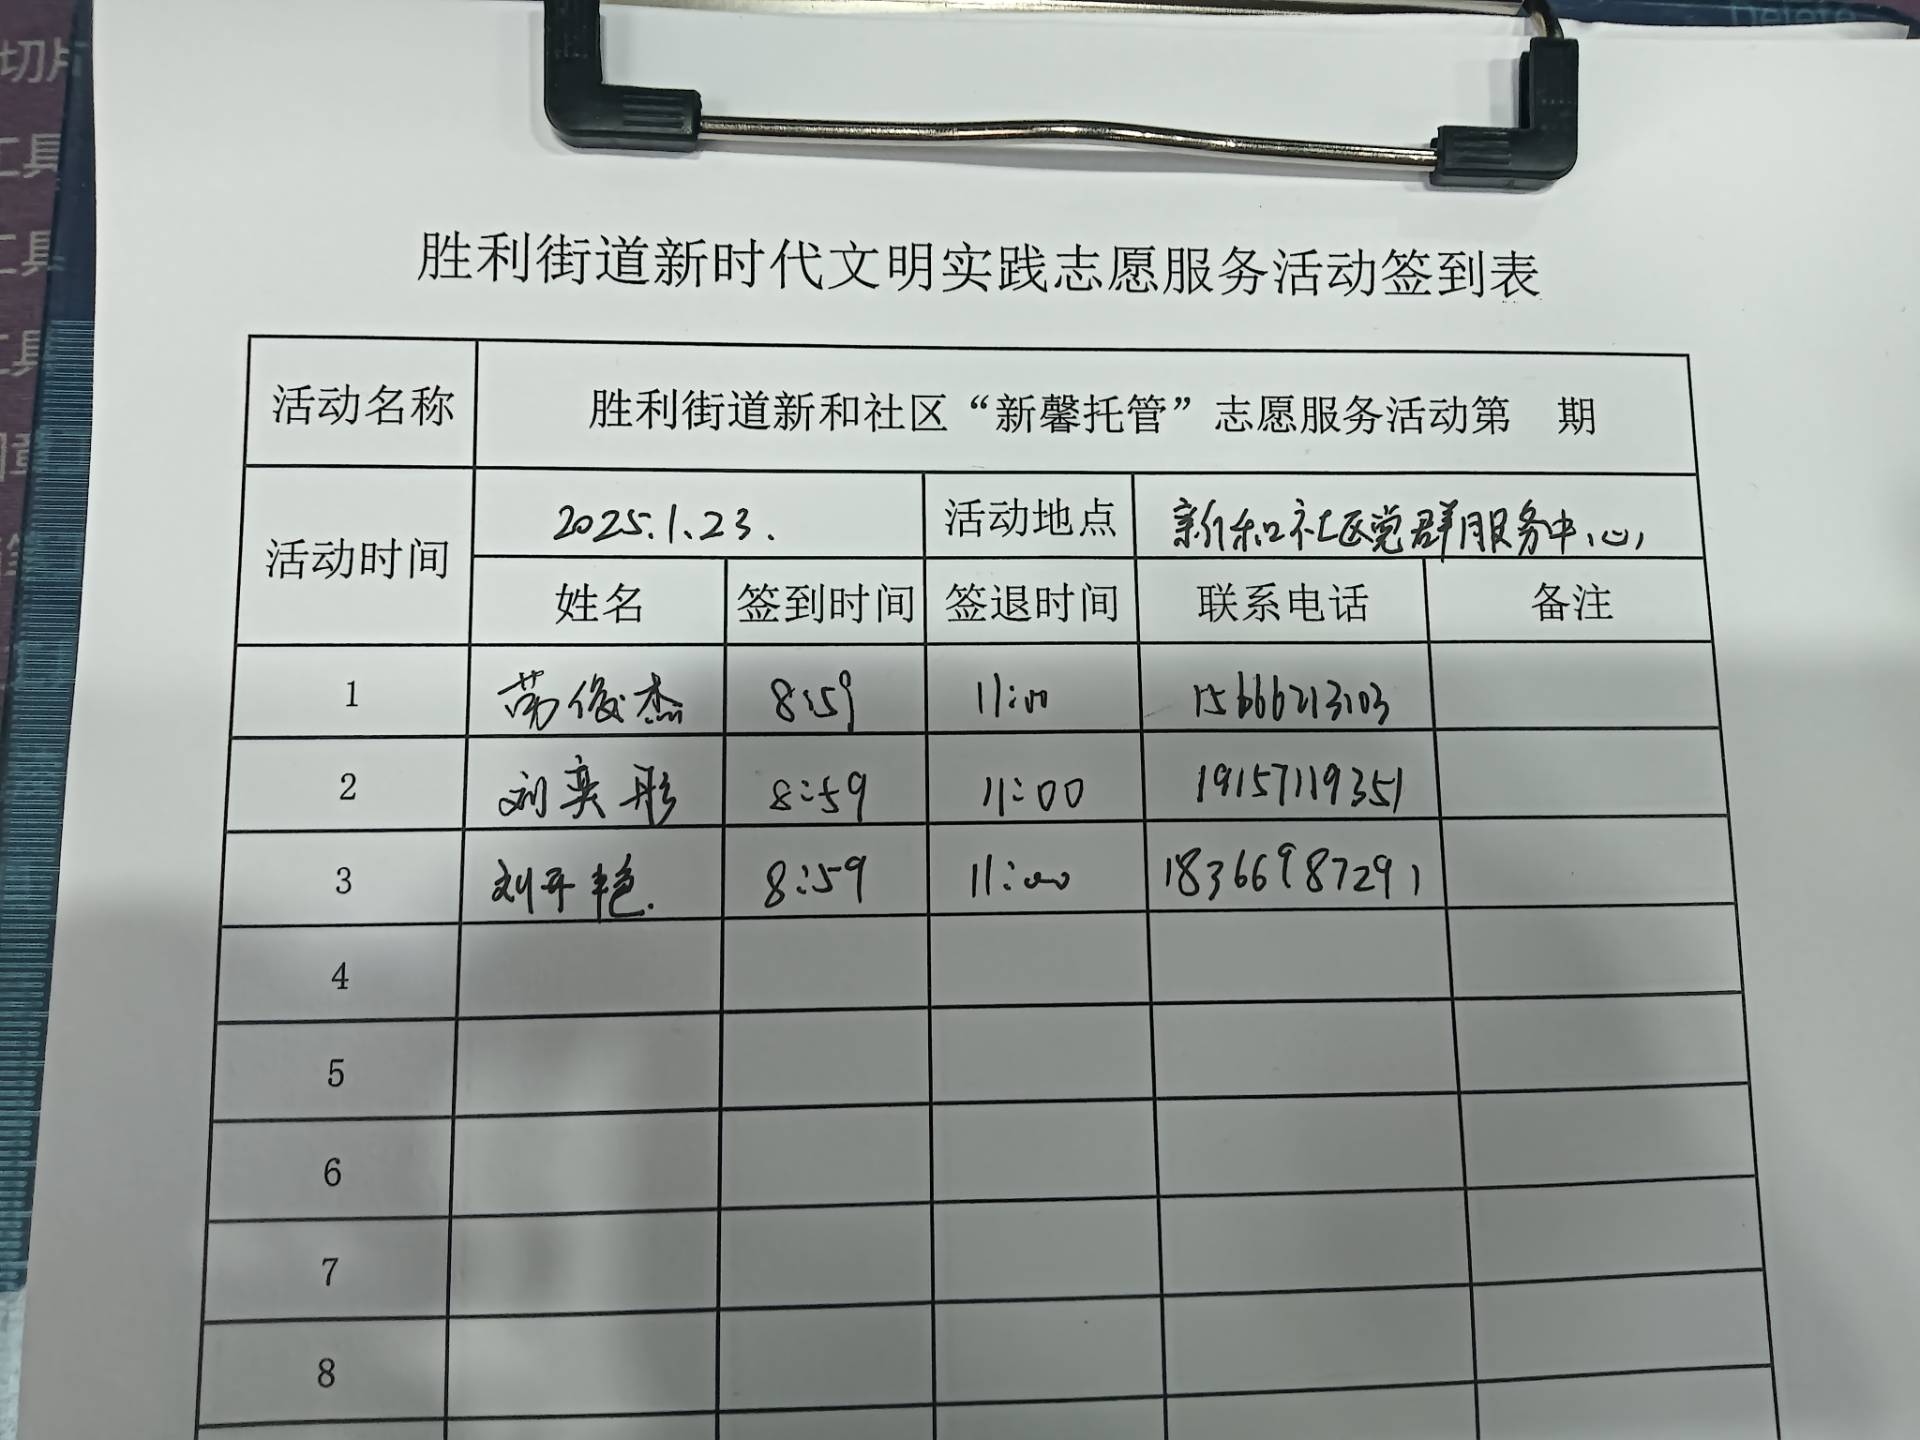 Delete
切片
工具
工具
工具
胜利街道新时代文明实践志愿服务活动签到表
活动名称 胜利街道新和社区“新馨托管”志愿服务活动第 期
活动时间 2025.1.23. 活动地点 新和社区党群服务中心
姓名 签到时间 签退时间 联系电话 备注
1 劳俊杰 8:59 11:00 15666213103
2 刘奕彤 8:59 11:00 19157119351
3 刘开艳. 8:59 11:00 18366987291
4
5
6
7
8